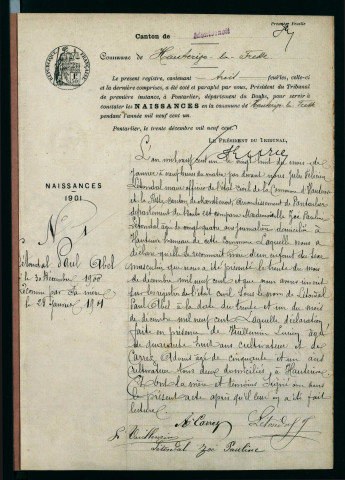 Premier Feuille
Canton de Montbenoît
Commune de Hauterive-la-Fresse
Le présent registre, contenant trois feuilles, celle-ci
et la dernière comprises, a été coté et paraphé par nous, Président du Tribunal
de première instance, à Pontarlier, département du Doubs, pour servir à
constater les NAISSANCES en la commune de Hauterive la Fresse
pendant l'année mil neuf cent un.
Pontarlier, le trente décembre mil neuf cent.
LE PRÉSIDENT DU TRIBUNAL,
NAISSANCES
1901
N° 1
Létondal Paul Abel
né le 30 Décembre 1900
reconnu par sa mère
le 28 Janvier 1901
L'an mil neuf cent un le vingt huit du mois de
janvier à neuf heures du matin par devant nous Jules
Létondal maire officier de l'état civil de la Commune d'Hauterive
et la Fresse canton de Montbenoit arrondissement de Pontarlier
département du Doubs est comparue Mademoiselle Zoé Pauline
Létondal âgée de vingt quatre ans journalière domiciliée à
Hauterive hameau de cette commune Laquelle nous a
déclaré qu'elle reconnait pour un enfant du sexe
masculin qui nous a été présenté le trente du mois
de décembre mil neuf cent et que nous avons inscrit
sur les registres de l'état civil sous le nom de Létondal
Paul Abel à la date du trente et un du mois
de décembre mil neuf cent Laquelle déclaration
faite en présence de Vuillemin Lucien âgé
de quarante huit ans cultivateur et de
Carrez Adonis âgé de cinquante et un ans
cultivateur tous deux domiciliés à Hauterive
Et ont la mère et témoins signé avec nous
le présent acte après qu'il leur en a été fait
lecture
A. Carrez Létondal J
L. Vuillemin
Létondal Zoé Pauline